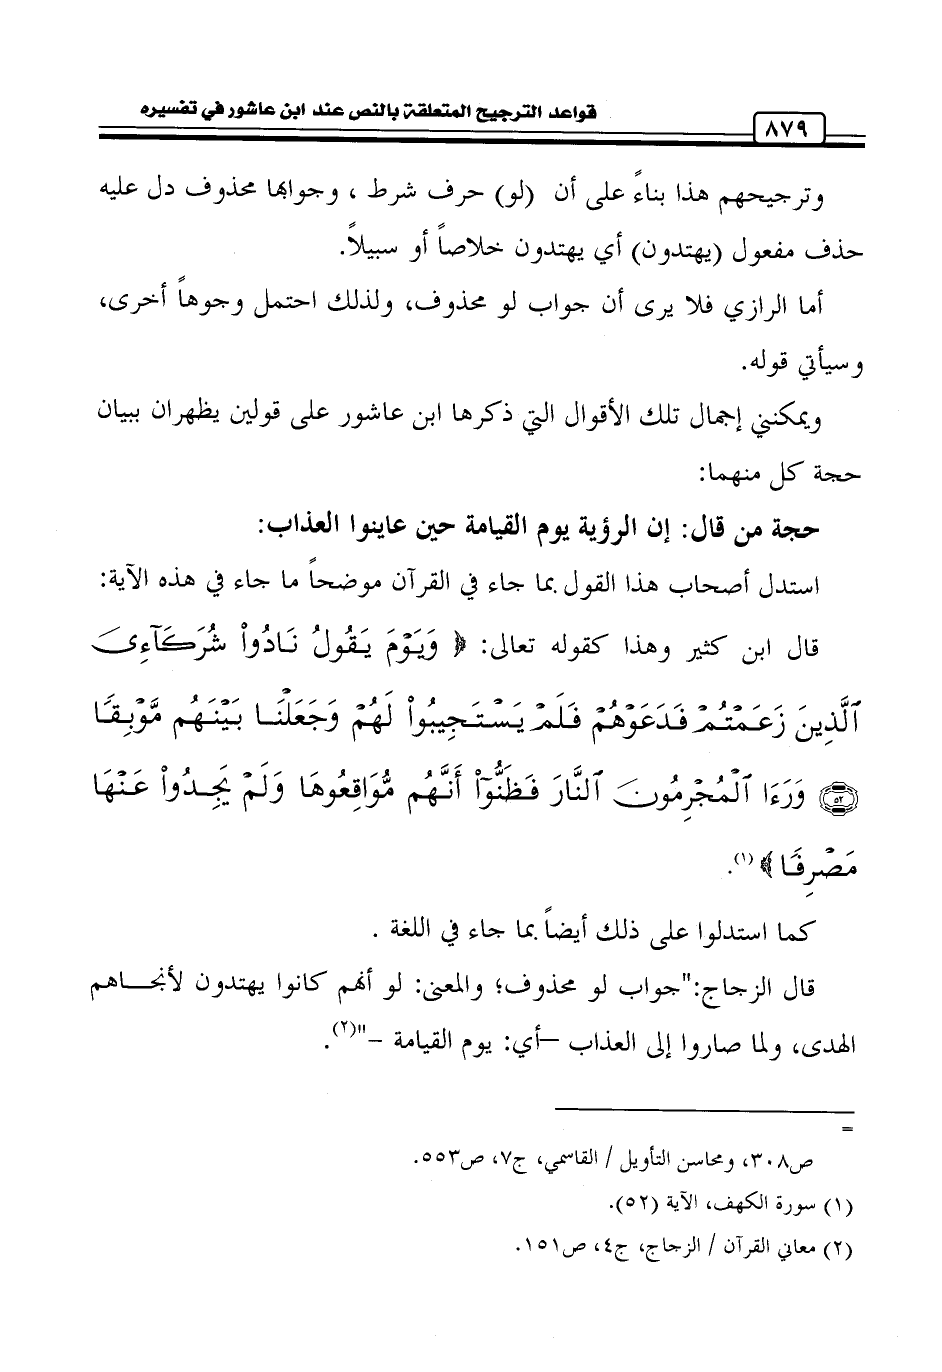 قواعد الترجيح المتعلقة بالنص عند ابن عاشور في تفسيره
٨٧٩
وترجيحهم هذا بناءً على أن (لو) حرف شرط ، وجوابها محذوف دل عليه
حذف مفعول (يهتدون) أي يهتدون خلاصاً أو سبيلاً.
أما الرازي فلا يرى أن جواب لو محذوف، ولذلك احتمل وجوهاً أخرى،
وسيأتي قوله.
ويمكنني إجمال تلك الأقوال التي ذكرها ابن عاشور على قولين يظهران ببيان
حجة كل منهما:
حجة من قال: إن الرؤية يوم القيامة حين عاينوا العذاب:
استدل أصحاب هذا القول بما جاء في القرآن موضحاً ما جاء في هذه الآية:
قال ابن كثير وهذا كقوله تعالى: ﴿ وَيَوْمَ يَقُولُ نَادُوا۟ شُرَكَآءِىَ
ٱلَّذِينَ زَعَمْتُمْ فَدَعَوْهُمْ فَلَمْ يَسْتَجِيبُوا۟ لَهُمْ وَجَعَلْنَا بَيْنَهُم مَّوْبِقًا
۝٥٢ وَرَءَا ٱلْمُجْرِمُونَ ٱلنَّارَ فَظَنُّوٓا۟ أَنَّهُم مُّوَاقِعُوهَا وَلَمْ يَجِدُوا۟ عَنْهَا
مَصْرِفًا ﴾(١).
كما استدلوا على ذلك أيضاً بما جاء في اللغة .
قال الزجاج:"جواب لو محذوف؛ والمعنى: لو أنهم كانوا يهتدون لأنجـــاهم
الهدى، ولما صاروا إلى العذاب –أي: يوم القيامة –"(٢).
=
ص٣٠٨، ومحاسن التأويل / القاسمي، ج٧، ص٥٥٣.
(١) سورة الكهف، الآية (٥٢).
(٢) معاني القرآن / الزجاج، ج٤، ص١٥١.